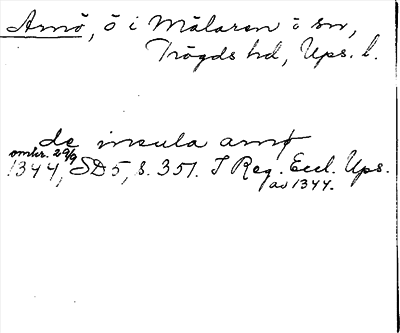 Arnö, ö i Mälaren ö sn,
Trögds hd, Ups. l.
de insula arnø
omkr. 29/9
1344, SD 5, s. 351. I Reg. Eccl. Ups.
av 1344.